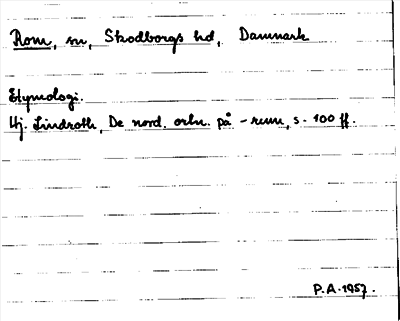 Rom, sn, Skodborgs hd, Danmark
Etymologi.
Hj. Lindroth, De nord. ortn. på -rum, s. 100 ff.
P.A. 1957.